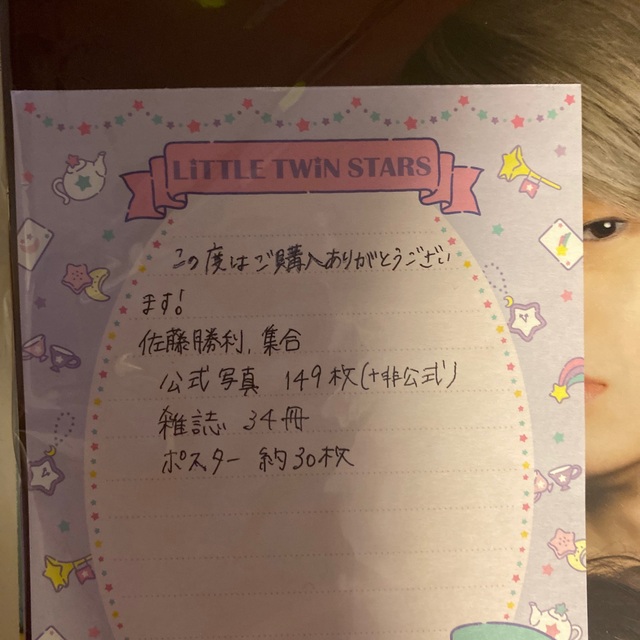 LiTTLE TWiN STARS
この度はご購入ありがとうござい
ます!
佐藤勝利、集合
公式写真 149枚(+非公式)
雑誌 34冊
ポスター 約30枚